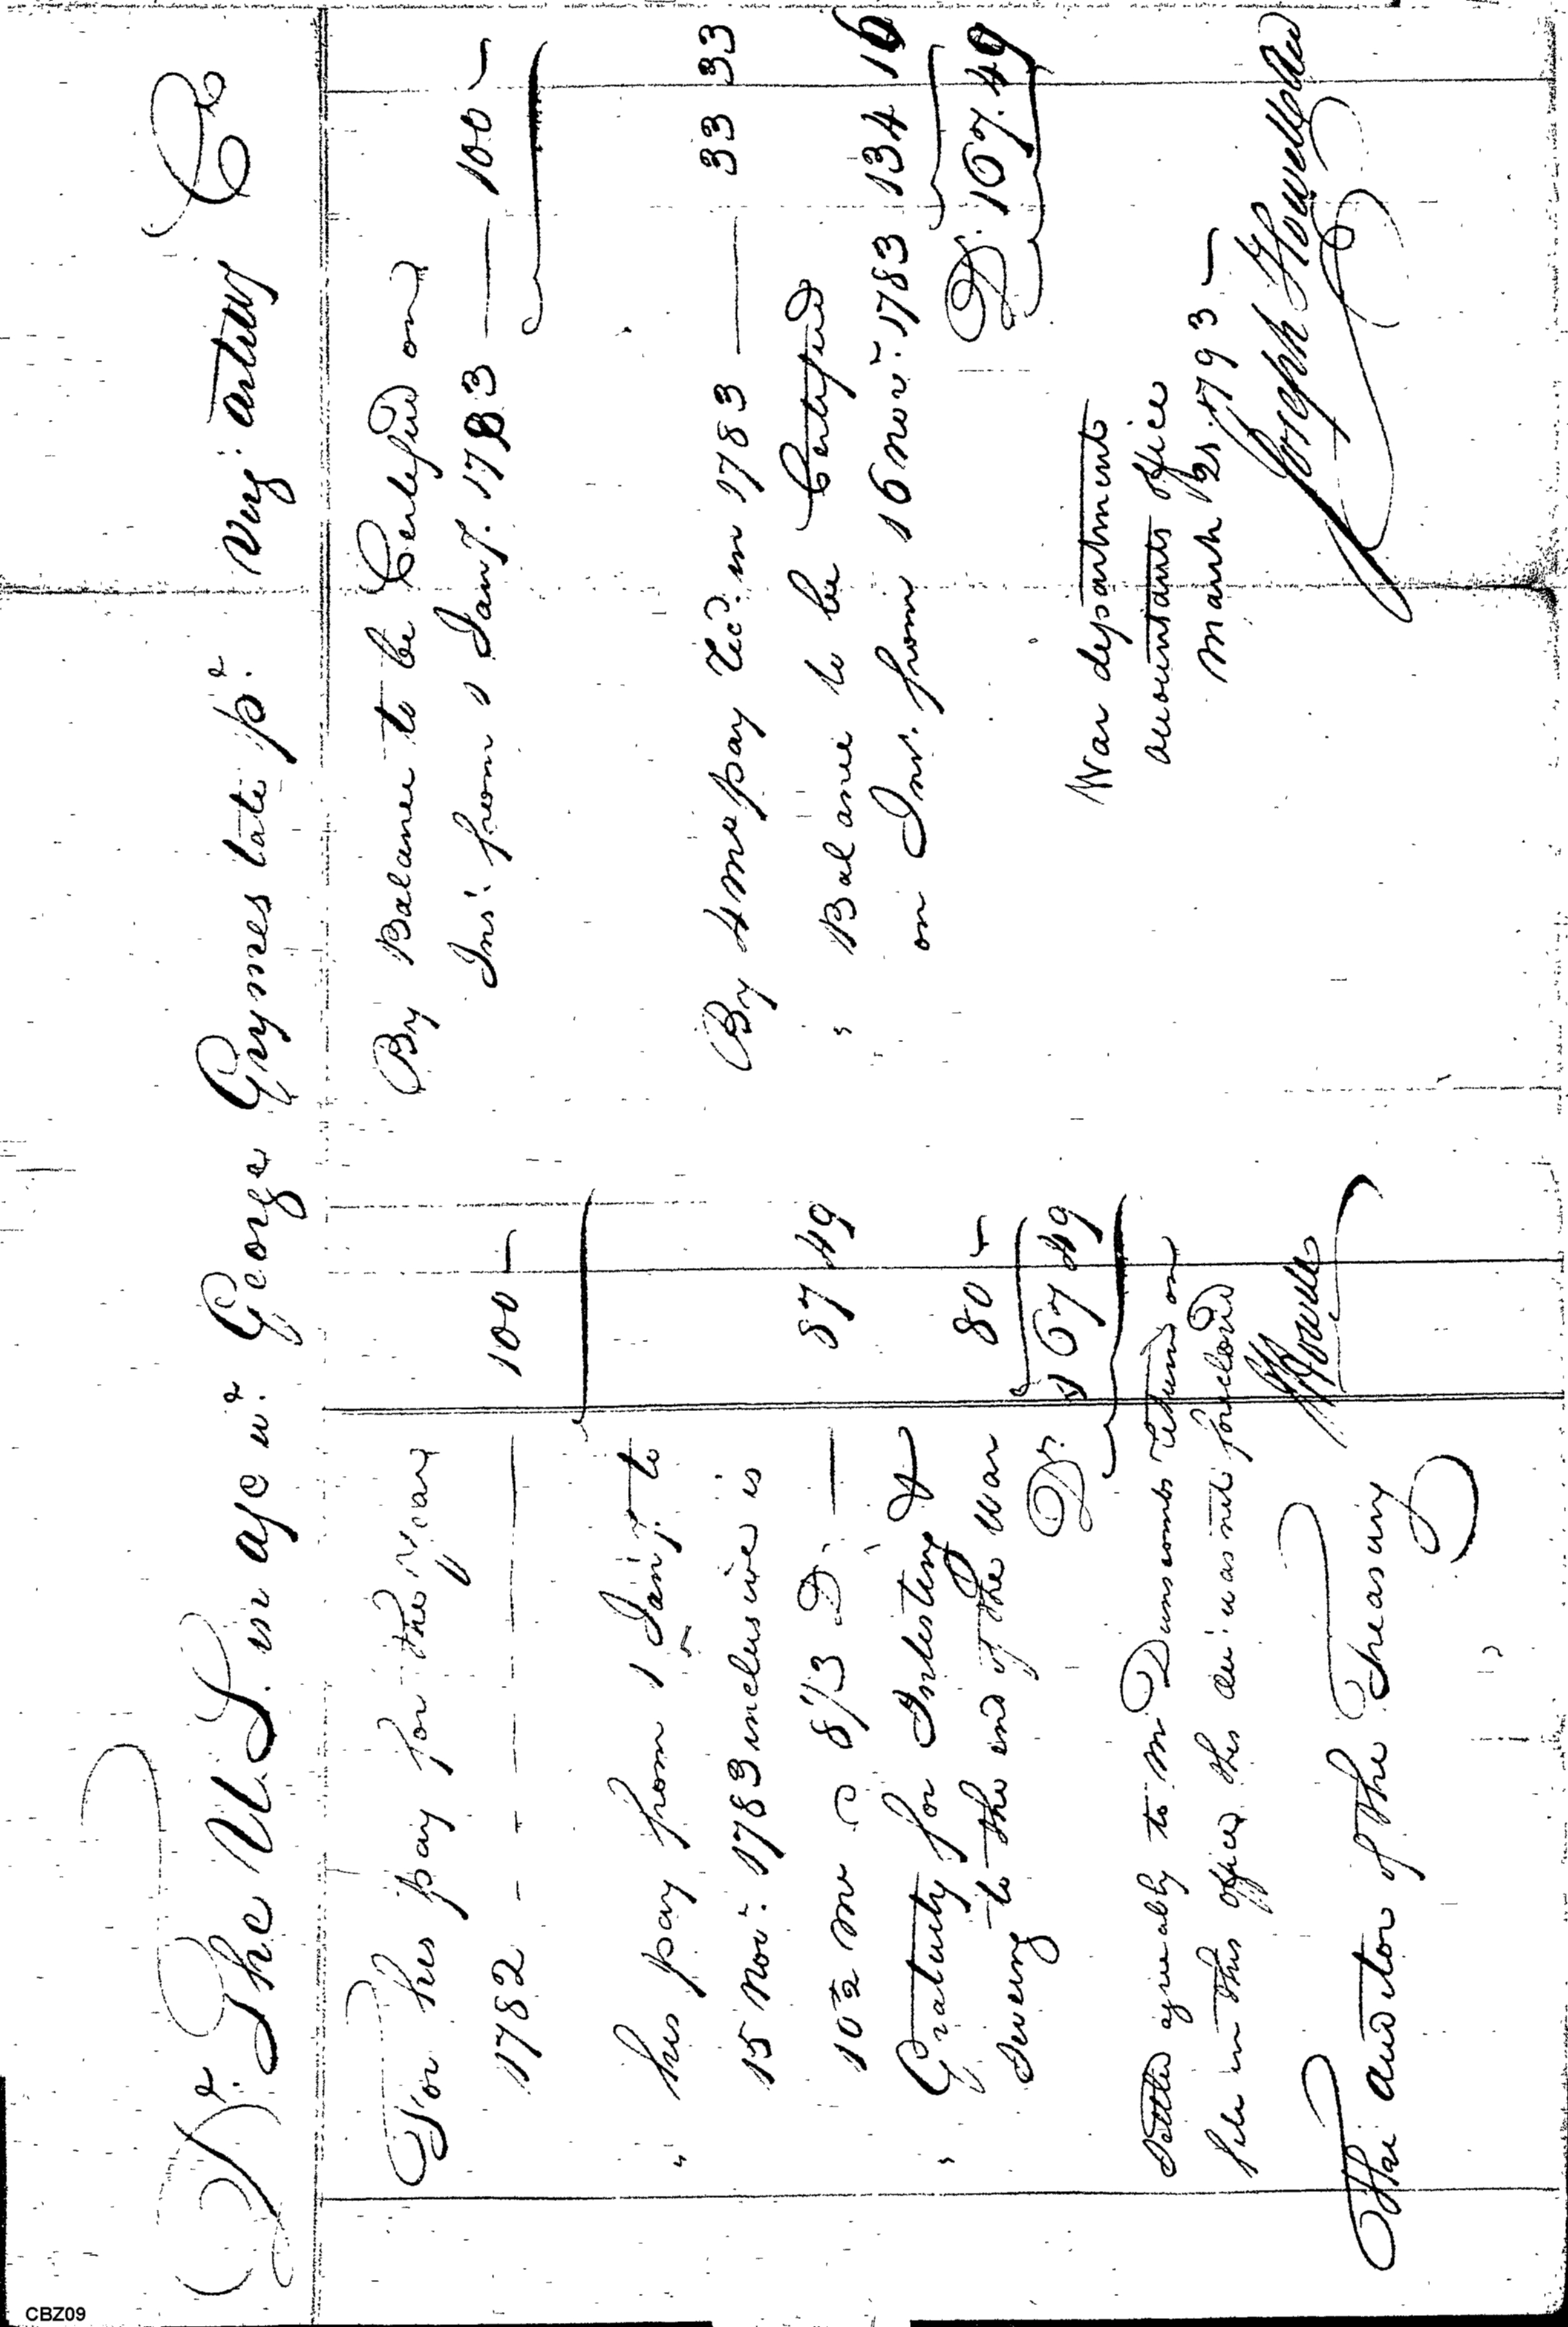 Dr. The U.S. in a/c wt. George Grymes late pr. Virga. artery Cr
For his pay for the year
1782 - - - - - 100 -
" his pay from 1 Jany. to
15 Novr. 1783 inclusive is
10½ mo @ 8 1/3 D. — 87 49
" Gratuity for Inlisting &
Serving to the end of the War 80 -
Dr. 167 49
Settled agreeably to Mr Dunscombs return on
file in this office, this act. was not foreclosed
JHowell
The auditor of the Treasury
By Balance to be Certified on
Int. from 1 Jany. 1783 — 100 -
By 4 mo pay Recd. in 1783 — 33 33
" Balance to be Certified
on Int. from 16 Novr. 1783 134 16
Dr. 167. 49
War department
accountants office
March 21. 1793 -
Joseph Howell
CBZ09